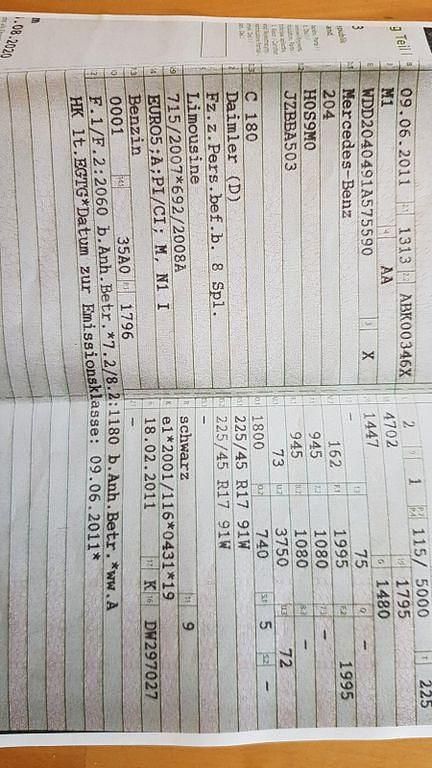 g Teil I
09.06.2011 1313 ABK00346X
M1 AA
WDD2040491A575590 X
Mercedes-Benz
204
H0S9M0
JZBBA503
C 180
Daimler (D)
Fz.z.Pers.bef.b. 8 Spl.
Limousine
715/2007*692/2008A
EURO5;A;PI/CI; M, N1 I
Benzin
0001 35A0 1796
2 1 115/ 5000 225
4702 1795
1447 1480
- 75 -
162 1995 1995
945 1080 -
945 1080 -
73 3750 72
1800 740 5 -
225/45 R17 91W
225/45 R17 91W
-
schwarz 9
e1*2001/116*0431*19
18.02.2011 K DW297027
-
F.1/F.2:2060 b.Anh.Betr.*7.2/8.2:1180 b.Anh.Betr.*ww.A
HK lt.EGTG*Datum zur Emissionsklasse: 09.06.2011*
.08.2020